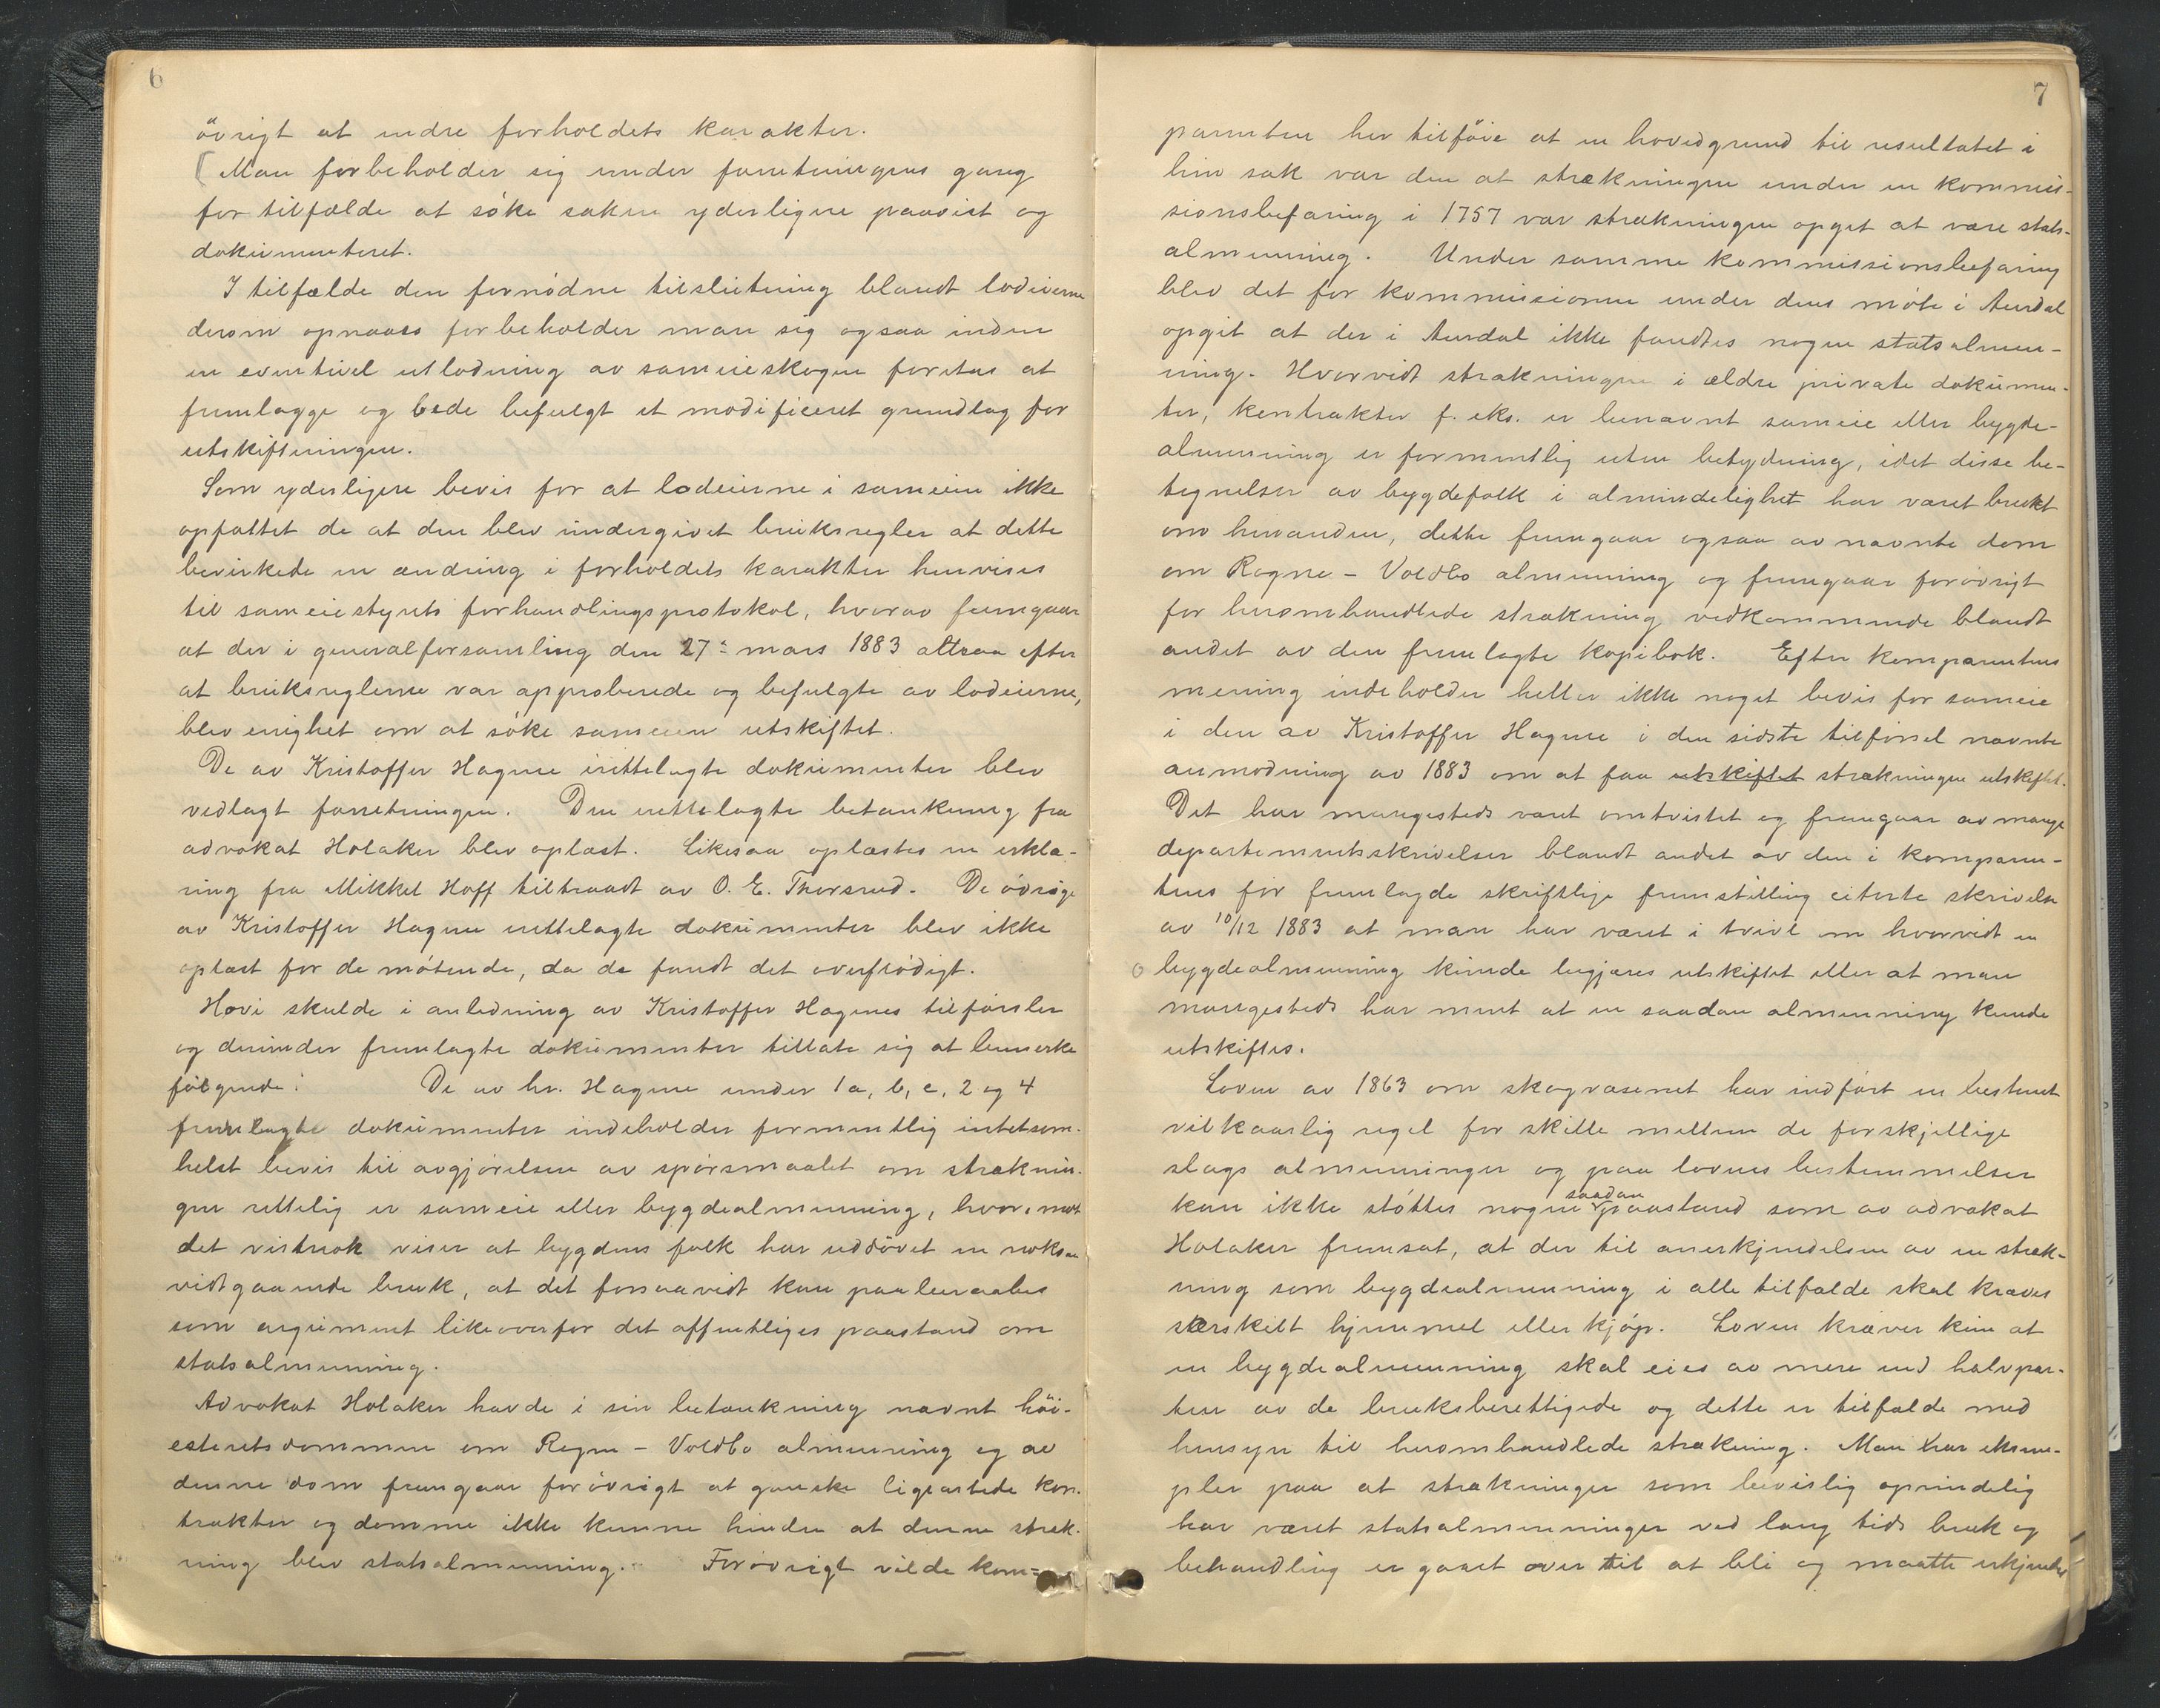 6
övrigt at endre forholdets karakter.
[Man forbeholder sig under forretningens gang
for tilfælde at söke saken yderligere paavist og
dokumenteret.
I tilfælde den fornödne tilslutning blandt lodeierne
derom opnaaes forbeholder man sig ogsaa inden
en eventuel utlodning av sameieskogen foretas at
fremlægge og bede befulgt et modificeret grundlag for
utskiftningen.
Som yderligere bevis for at lodeierne i sameien ikke
opfattet de at den blev undergivet bruksregler at dette
bevirkede en ændring i forholdets karakter henvises
til sameiestyrets forhandlingsprotokol, hvorav fremgaar
at der i generalforsamling den 27: mars 1883 altsaa efter
at bruksreglerne var approberede og befulgte av lodeierne,
blev enighet om at söke sameien utskiftet.
De av Kristoffer Hagene irettelagte dokumenter blev
vedlagt forretningen. Den irettelagte betænkning fra
advokat Holaker blev oplæst. Likesaa oplæstes en erklæ-
ring fra Mikkel Hoff tiltraadt av O. E. Thorsrud. De övrige
av Kristoffer Hagene irettelagte dokumenter blev ikke
oplæst for de mötende, da de fandt det overflödigt.
Hovi skulde i anledning av Kristoffer Hagenes tilförsler
og derunder fremlagte dokumenter tillate sig at bemerke
fölgende: De av hr. Hagene under 1a, b, c, 2 og 4
fremlagte dokumenter indeholder formentlig intetsom-
helst bevis til avgjörelsen av spörsmaalet om stræknin-
gen rettelig er sameie eller bygdealmenning, hvorimot
det vistnok viser at bygdens folk har uddövet en noksaa
vidtgaaende bruk, at det forsaavidt kan paaberaabes
som argument likeoverfor det offentliges paastand om
statsalmenning.
Advokat Holaker havde i sin betænkning nævnt höi-
esteretsdommen om Rogne - Voldbo almenning og av
denne dom fremgaar forövrigt at ganske ligeartede kon-
trakter og domme ikke kunne hindre at denne stræk-
ning blev statsalmenning. Forövrigt vilde kom=
7
parenten her tilföie at en hovedgrund til resultatet i
hin sak var den at strækningen under en kommis-
sionsbefaring i 1757 var strækningen opget at være stats-
almenning. Under samme kommissionsbefaring
blev det for kommissionen under dens möte i Aurdal
opgit at der i Aurdal ikke fandtes nogen statsalmen-
ning. Hvorvidt strækningen i ældre private dokumen-
ter, kontrakter f. eks. er benævnt sameie eller bygde-
almenning er formentlig uten betydning, idet disse be-
tegnelser av bygdefolk i almindelighet har været brukt
om hinanden, dette fremgaar ogsaa av nævnte dom
om Rogne - Voldbo almenning og fremgaar forövrigt
for heromhandlede strækning vedkommende blandt
andet av den fremlagte kopibok. Efter komparentens
mening indeholder heller ikke noget bevis for sameie
i den av Kristoffer Hagene i den sidste tilförsel nævnte
anmodning av 1883 om at faa utskiftet strækningen utskiftet.
Det har mangesteds været omtvistet og fremgaar av mange
departementsskrivelser blandt andet av den i komparen-
tens för fremlagde skriftlige fremstilling citerte skrivelse
av 10/12 1883 at man har været i tvivl om hvorvidt en
o bygdealmenning kunde begjæres utskiftet eller at man
mangesteds har ment at en saadan almenning kunde
utskiftes.
Loven av 1863 om skogvæsenet har indfört en bestemt
vilkaarlig regel for skille mellem de forskjellige
slags almenninger og paa lovens bestemmelser
kan ikke stöttes nogen saadan paastand som av advokat
Holaker fremsat, at der til anerkjendelsen av en stræk-
ning som bygdealmenning i alle tilfælde skal kræves
særskilt hjemmel eller kjöp. Loven kræver kun at
en bygdealmenning skal eies av mere end halvpar-
ten av de bruksberettigede og dette er tilfælde med
hensyn til heromhandlede strækning. Man har eksem-
pler paa at strækninger som bevislig oprindelig
har været statsalmenninger ved lang tids bruk og
behandling er gaaet over til at bli og maatte erkjendes